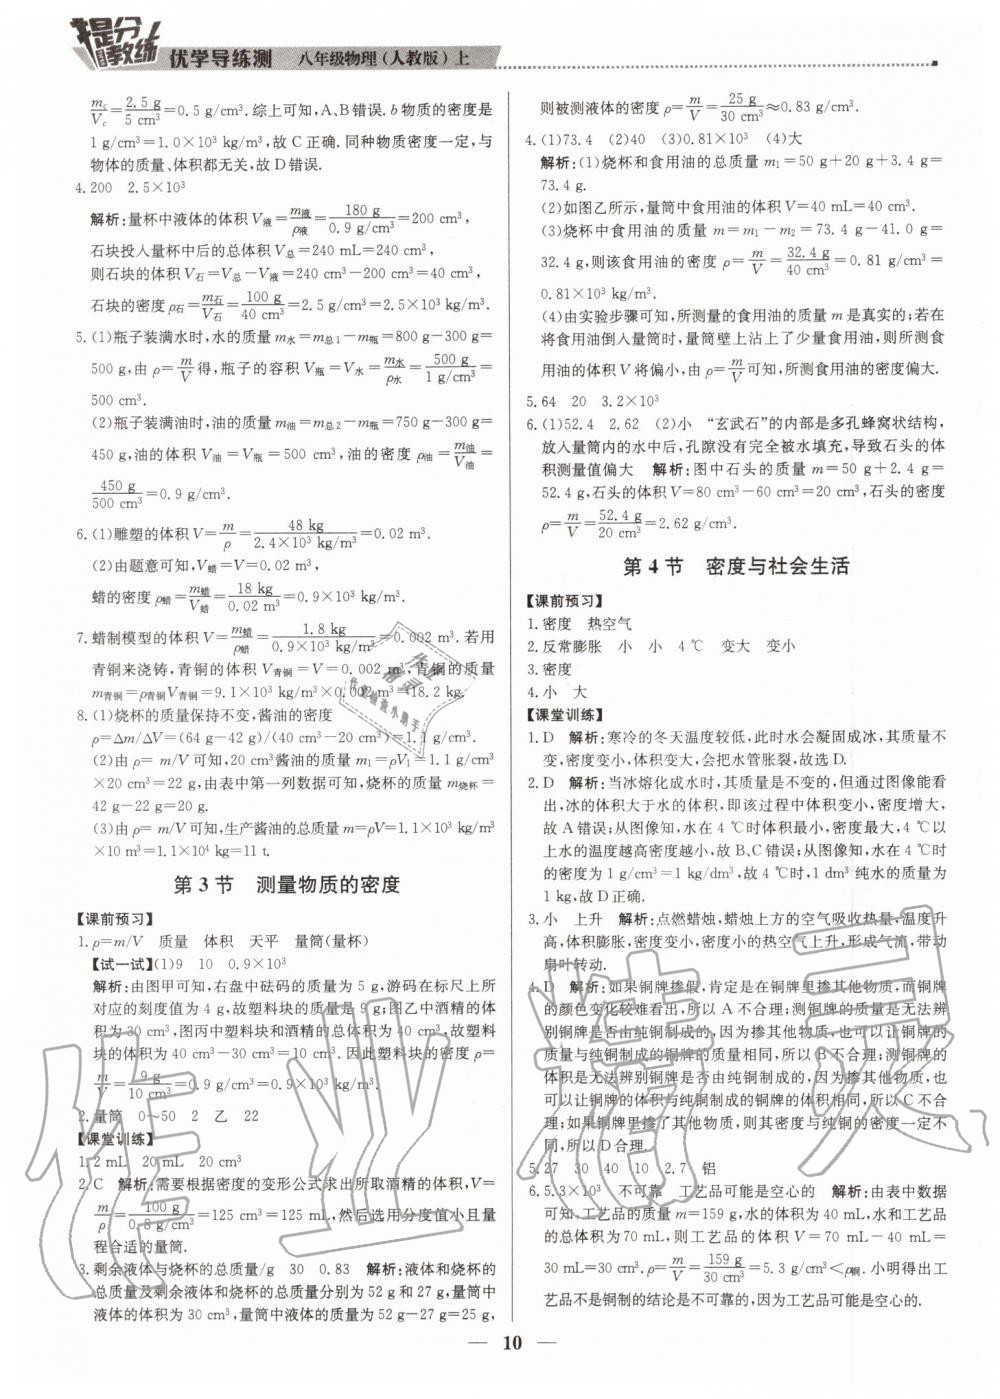 提分教练 优学导练测 八年级物理(人教版)上
m_c/V_c=2.5 g/5 cm³=0.5 g/cm³.综上可知,A、B错误.b物质的密度是
1 g/cm³=1.0×10³ kg/m³,故C正确.同种物质密度一定,与
物体的质量、体积都无关,故D错误.
4.200 2.5×10³
解析:量杯中液体的体积V液=m液/ρ液=180 g/0.9 g/cm³=200 cm³,
石块投入量杯中后的总体积V总=240 mL=240 cm³,
则石块的体积V石=V总-V液=240 cm³-200 cm³=40 cm³,
石块的密度ρ石=m石/V石=100 g/40 cm³=2.5 g/cm³=2.5×10³ kg/m³.
5.(1)瓶子装满水时,水的质量m水=m总1-m瓶=800 g-300 g=
500 g,由ρ=m/V得,瓶子的容积V瓶=V水=m水/ρ水=500 g/1 g/cm³=
500 cm³.
(2)瓶子装满油时,油的质量m油=m总2-m瓶=750 g-300 g=
450 g,油的体积V油=V瓶=500 cm³,油的密度ρ油=m油/V油=
450 g/500 cm³=0.9 g/cm³.
6.(1)雕塑的体积V=m/ρ=48 kg/2.4×10³ kg/m³=0.02 m³.
(2)由题意可知,V蜡=V=0.02 m³,
蜡的密度ρ蜡=m蜡/V蜡=18 kg/0.02 m³=0.9×10³ kg/m³.
7.蜡制模型的体积V=m蜡/ρ蜡=1.8 kg/0.9×10³ kg/m³=0.002 m³.若用
青铜来浇铸,青铜的体积V青铜=V=0.002 m³,青铜的质量
m青铜=ρ青铜V青铜=9.1×10³ kg/m³×0.002 m³=18.2 kg.
8.(1)烧杯的质量保持不变,酱油的密度
ρ=Δm/ΔV=(64 g-42 g)/(40 cm³-20 cm³)=1.1 g/cm³.
(2)由ρ= m/V可知,20 cm³酱油的质量m₁=ρV₁=1.1 g/cm³
×20 cm³=22 g,由表中第一列数据可知,烧杯的质量m烧杯=
42 g-22 g=20 g.
(3)由ρ= m/V可知,生产酱油的总质量m=ρV=1.1×10³ kg/m³
×10 m³=1.1×10⁴ kg=11 t.
第3节 测量物质的密度
【课前预习】
1.ρ=m/V 质量 体积 天平 量筒(量杯)
【试一试】(1)9 10 0.9×10³
解析:由图甲可知,右盘中砝码的质量为5 g,游码在标尺上所
对应的刻度值为4 g,故塑料块的质量是9 g;图乙中酒精的体
积为30 cm³,图丙中塑料块和酒精的总体积为40 cm³,故塑料
块的体积为40 cm³-30 cm³=10 cm³.因此塑料块的密度ρ=
m/V=9 g/10 cm³=0.9 g/cm³=0.9×10³ kg/m³.
2.量筒 0~50 2 乙 22
【课堂训练】
1.2 mL 20 mL 20 cm³
2.C 解析:需要根据密度的变形公式求出所取酒精的体积,V=
m/ρ=100 g/0.8 g/cm³=125 cm³=125 mL,然后选用分度值小且量
程合适的量筒.
3.剩余液体与烧杯的总质量/g 30 0.83 解析:液体和烧杯的
总质量及剩余液体和烧杯的总质量分别为52 g和27 g,量筒中
液体的体积为30 cm³,量筒中液体的质量为52 g-27 g=25 g,
则被测液体的密度ρ=m/V=25 g/30 cm³≈0.83 g/cm³.
4.(1)73.4 (2)40 (3)0.81×10³ (4)大
解析:(1)烧杯和食用油的总质量m₁=50 g+20 g+3.4 g=
73.4 g.
(2)如图乙所示,量筒中食用油的体积V=40 mL=40 cm³.
(3)烧杯中食用油的质量m=m₁-m₂=73.4 g-41.0 g=
32.4 g,则该食用油的密度ρ=m/V=32.4 g/40 cm³=0.81 g/cm³=
0.81×10³ kg/m³.
(4)由实验步骤可知,所测量的食用油的质量m是真实的;若在
将食用油倒入量筒时,量筒壁上沾上了少量食用油,则所测食
用油的体积V将偏小,由ρ=m/V可知,所测食用油的密度偏大.
5.64 20 3.2×10³
6.(1)52.4 2.62 (2)小 “玄武石”的内部是多孔蜂窝状结构,
放入量筒内的水中后,孔隙没有完全被水填充,导致石头的体
积测量值偏大 解析:图中石头的质量m=50 g+2.4 g=
52.4 g,石头的体积V=80 cm³-60 cm³=20 cm³,石头的密度
ρ=m/V=52.4 g/20 cm³=2.62 g/cm³.
第4节 密度与社会生活
【课前预习】
1.密度 热空气
2.反常膨胀 小 小 4 ℃ 变大 变小
3.密度
4.小 大
【课堂训练】
1.D 解析:寒冷的冬天温度较低,此时水会凝固成冰,其质量不
变,密度变小,体积变大,会把水管胀裂,故选D.
2.D 解析:当冰熔化成水时,其质量是不变的,但通过图像能看
出,冰的体积大于水的体积,即该过程中体积变小,密度增大,
故A错误;从图像知,水在4 ℃时体积最小,密度最大,4 ℃以
上水的温度越高密度越小,故B、C错误;从图像知,水在4 ℃时
的密度为1 g/cm³=1 kg/dm³,故4 ℃时,1 dm³纯水的质量为
1 kg,故D正确.
3.小 上升 解析:点燃蜡烛,蜡烛上方的空气吸收热量,温度升
高,体积膨胀,密度变小,密度小的热空气上升,形成气流,带动
扇叶转动.
4.D 解析:如果铜牌掺假,肯定是在铜牌里掺其他物质,而铜牌
的颜色变化较难看出,所以A不合理;测铜牌的质量是无法辨
别铜牌是否由纯铜制成的,因为掺其他物质,也可以让铜牌的
质量与纯铜制成的铜牌的质量相同,所以B不合理;测铜牌的
体积是无法辨别铜牌是否由纯铜制成的,因为掺其他物质,也
可以让铜牌的体积与纯铜制成的铜牌的体积相同,所以C不合
理;如果铜牌里掺了其他物质,则其密度与纯铜的密度一定不
同,所以D合理.
5.27 30 40 10 2.7 铝
6.5.3×10³ 不可靠 工艺品可能是空心的 解析:由表中数据
可知,工艺品的质量m=159 g,水的体积为40 mL,水和工艺品
的总体积为70 mL,则工艺品的体积V=70 mL-40 mL=
30 mL=30 cm³.ρ=m/V=159 g/30 cm³=5.3 g/cm³<ρ铜.小明得出工
艺品不是铜制的结论是不可靠的,因为工艺品可能是空心的.
— 10 —
作业精灵